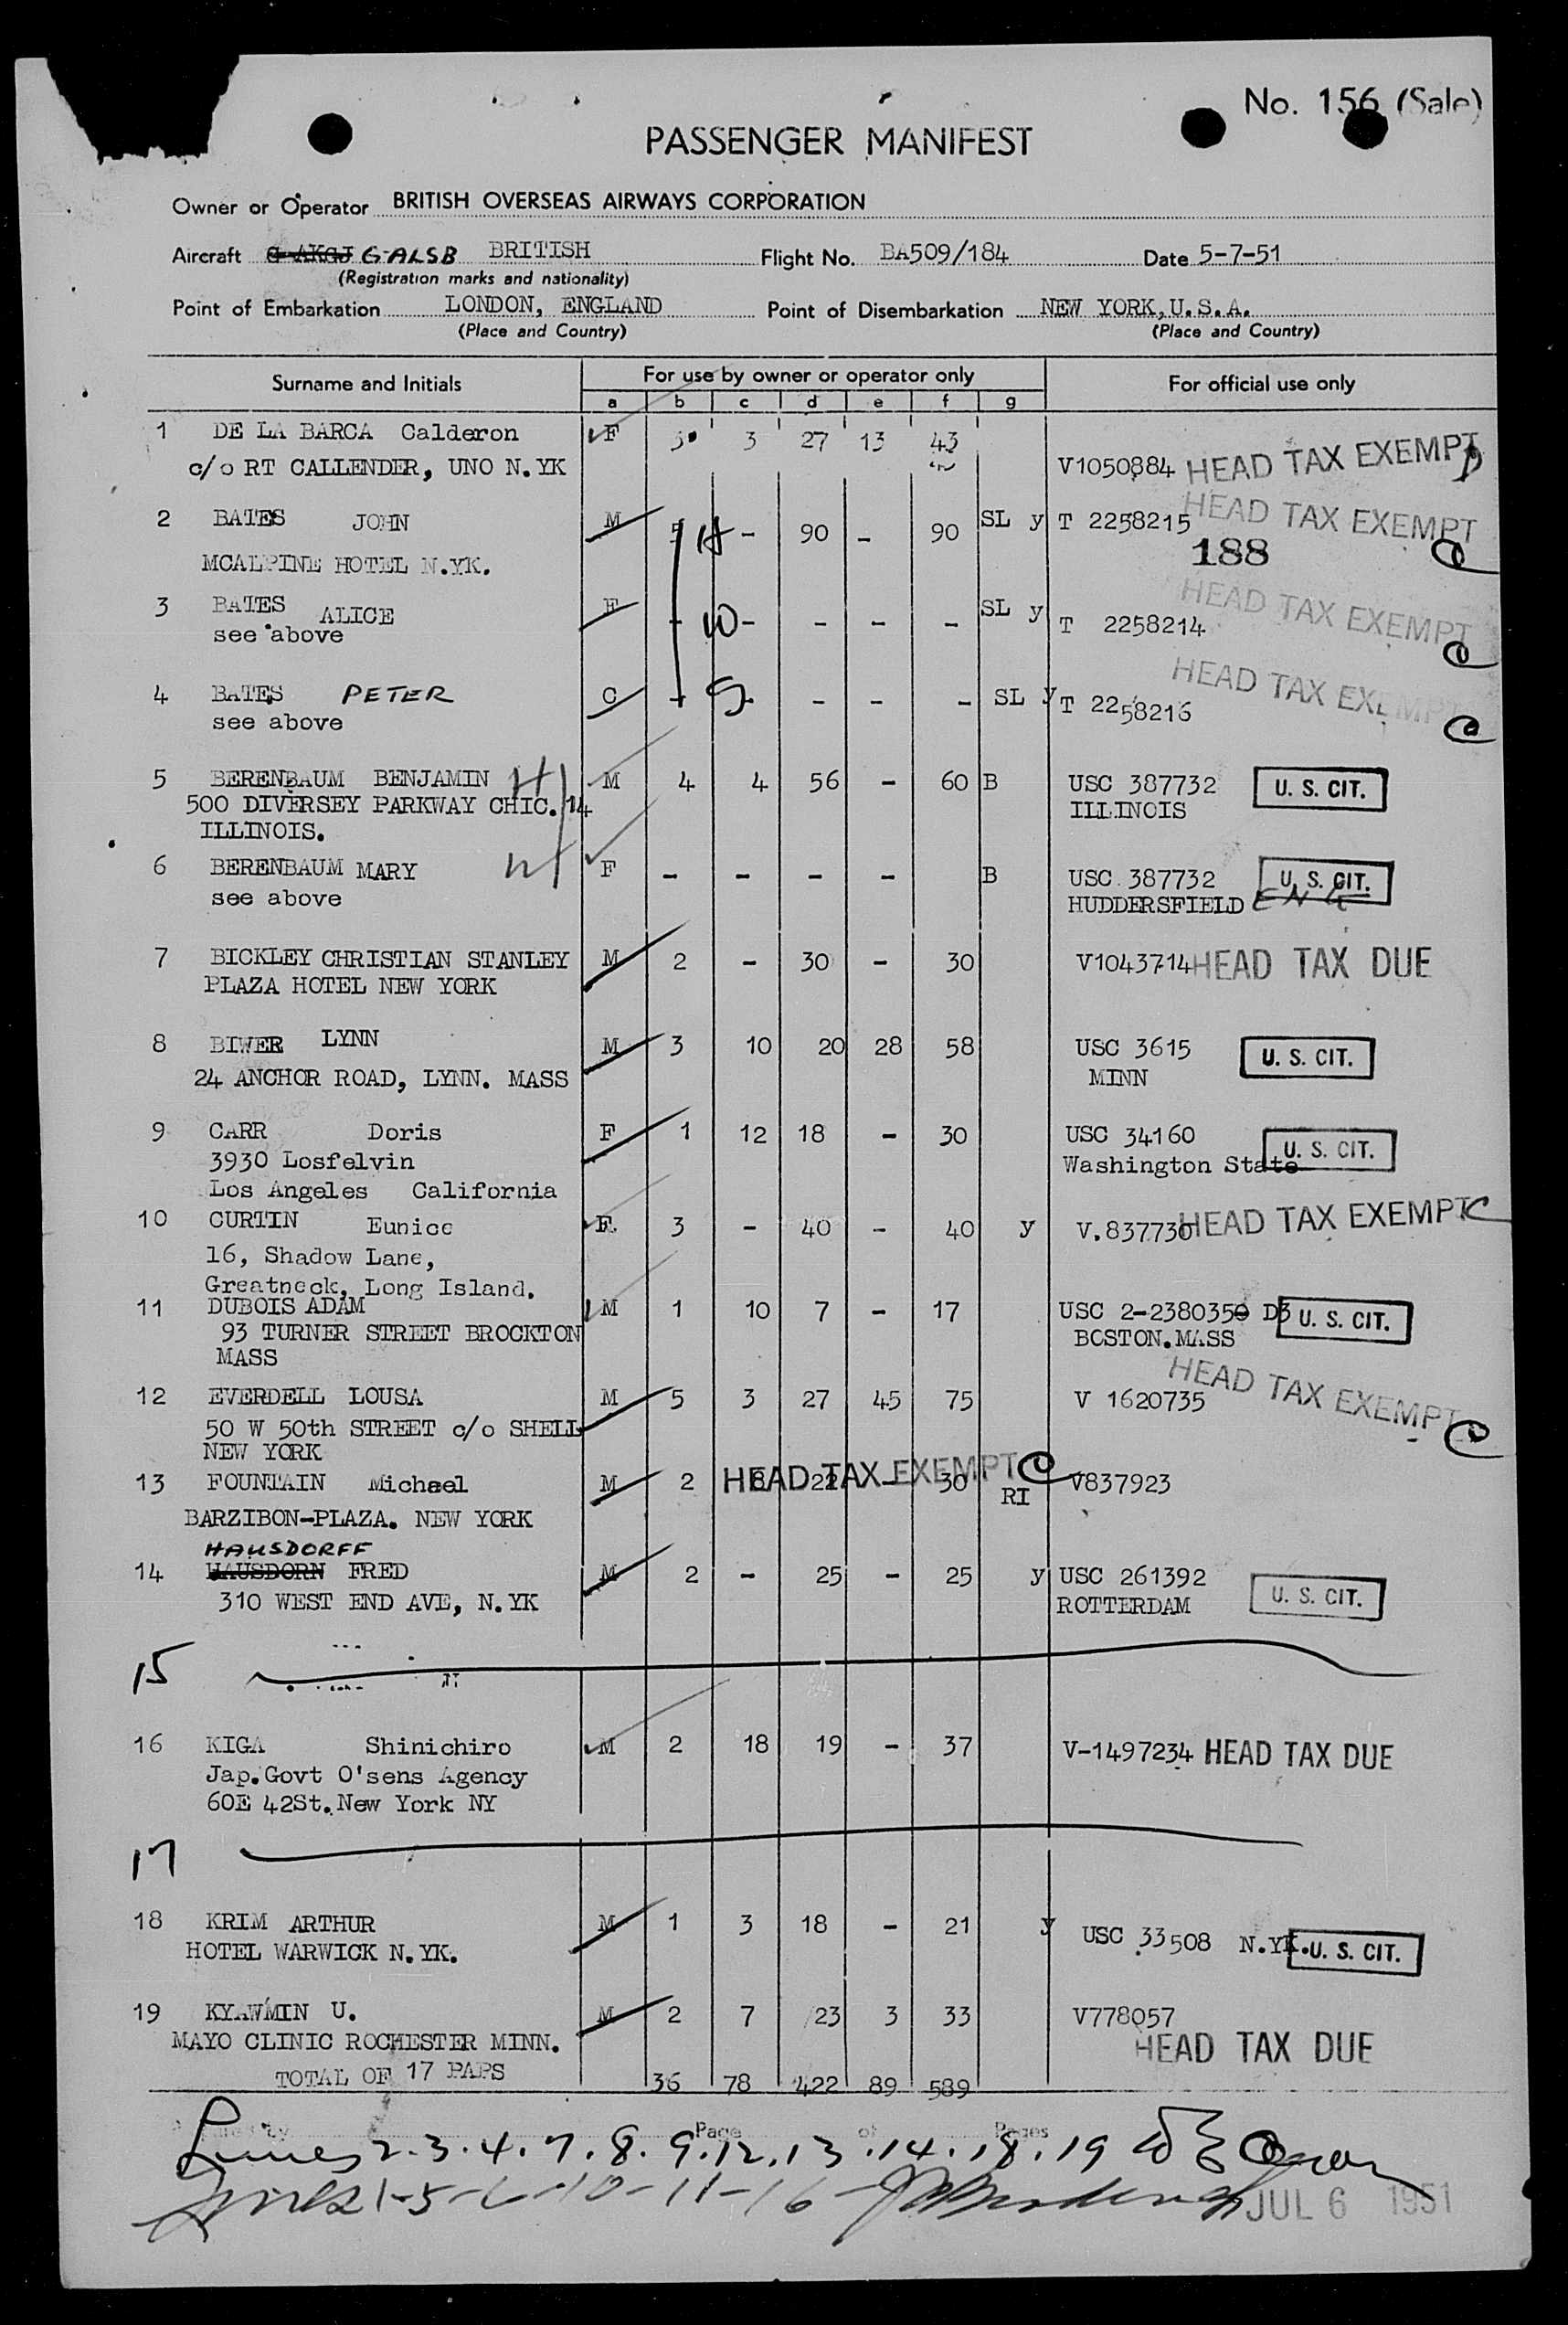 No. 156 (Sale)
PASSENGER MANIFEST
Owner or Operator BRITISH OVERSEAS AIRWAYS CORPORATION
Aircraft G-AKGJ G-ALSB BRITISH Flight No. BA509/184 Date 5-7-51
(Registration marks and nationality)
Point of Embarkation LONDON, ENGLAND Point of Disembarkation NEW YORK, U.S.A.
(Place and Country) (Place and Country)
Surname and Initials For use by owner or operator only For official use only
a b c d e f g
1 DE LA BARCA Calderon F 3 27 13 43
c/o RT CALLENDER, UNO N.YK V1050884 HEAD TAX EXEMPT
2 BATES JOHN M 5 H - 90 - 90 SL y T 2258215 HEAD TAX EXEMPT
MCALPINE HOTEL N.YK. 188 C
3 BATES ALICE F - W - - - - SL y T 2258214 HEAD TAX EXEMPT
see above C
4 BATES PETER C - S - - - - SL y T 2258216 HEAD TAX EXEMPT
see above C
5 BERENBAUM BENJAMIN H M 4 4 56 - 60 B USC 387732 U. S. CIT.
500 DIVERSEY PARKWAY CHIC. 14 ILLINOIS
ILLINOIS.
6 BERENBAUM MARY W F - - - - B USC 387732 U. S. CIT.
see above HUDDERSFIELD ENG
7 BICKLEY CHRISTIAN STANLEY M 2 - 30 - 30 V1043714 HEAD TAX DUE
PLAZA HOTEL NEW YORK
8 BIWER LYNN M 3 10 20 28 58 USC 3615 U. S. CIT.
24 ANCHOR ROAD, LYNN. MASS MINN
9 CARR Doris F 1 12 18 - 30 USC 34160 U. S. CIT.
3930 Losfelvin Washington State
Los Angeles California
10 CURTIN Eunice F. 3 - 40 - 40 y V.837730 HEAD TAX EXEMPT C
16, Shadow Lane,
Greatneck, Long Island.
11 DUBOIS ADAM M 1 10 7 - 17 USC 2-2380350 D3 U. S. CIT.
93 TURNER STREET BROCKTON BOSTON.MASS
MASS
12 EVERDELL LOUSA M 5 3 27 45 75 V 1620735 HEAD TAX EXEMPT
50 W 50th STREET c/o SHELL C
NEW YORK
13 FOUNTAIN Michael M 2 8 22 - 30 RI V837923 HEAD TAX EXEMPT C
BARZIBON-PLAZA. NEW YORK
HAUSDORFF
14 HAUSDORN FRED M 2 - 25 - 25 y USC 261392 U. S. CIT.
310 WEST END AVE, N.YK ROTTERDAM
15
16 KIGA Shinichiro M 2 18 19 - 37 V-1497234 HEAD TAX DUE
Jap.Govt O'sens Agency
60E 42St. New York NY
17
18 KRIM ARTHUR M 1 3 18 - 21 y USC 33508 N.YK. U. S. CIT.
HOTEL WARWICK N.YK.
19 KYAWMIN U. M 2 7 23 3 33 V778057
MAYO CLINIC ROCHESTER MINN. HEAD TAX DUE
TOTAL OF 17 PAPS 36 78 422 89 589
Page of Pages
Lines 2.3.4.7.8.9.12.13.14.18.19
Lines 1-5-6-10-11-16-
JUL 6 1951